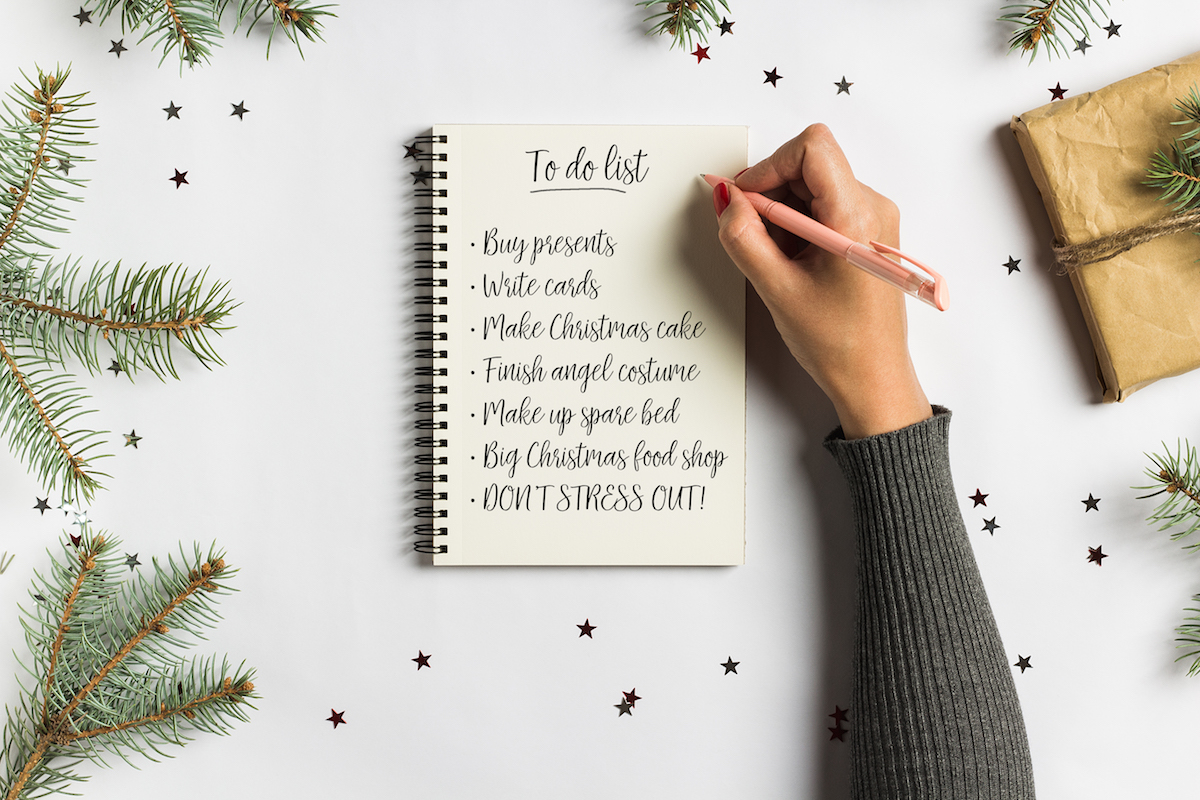 To do list
· Buy presents
· Write cards
· Make Christmas cake
· Finish angel costume
· Make up spare bed
· Big Christmas food shop
· DON'T STRESS OUT!